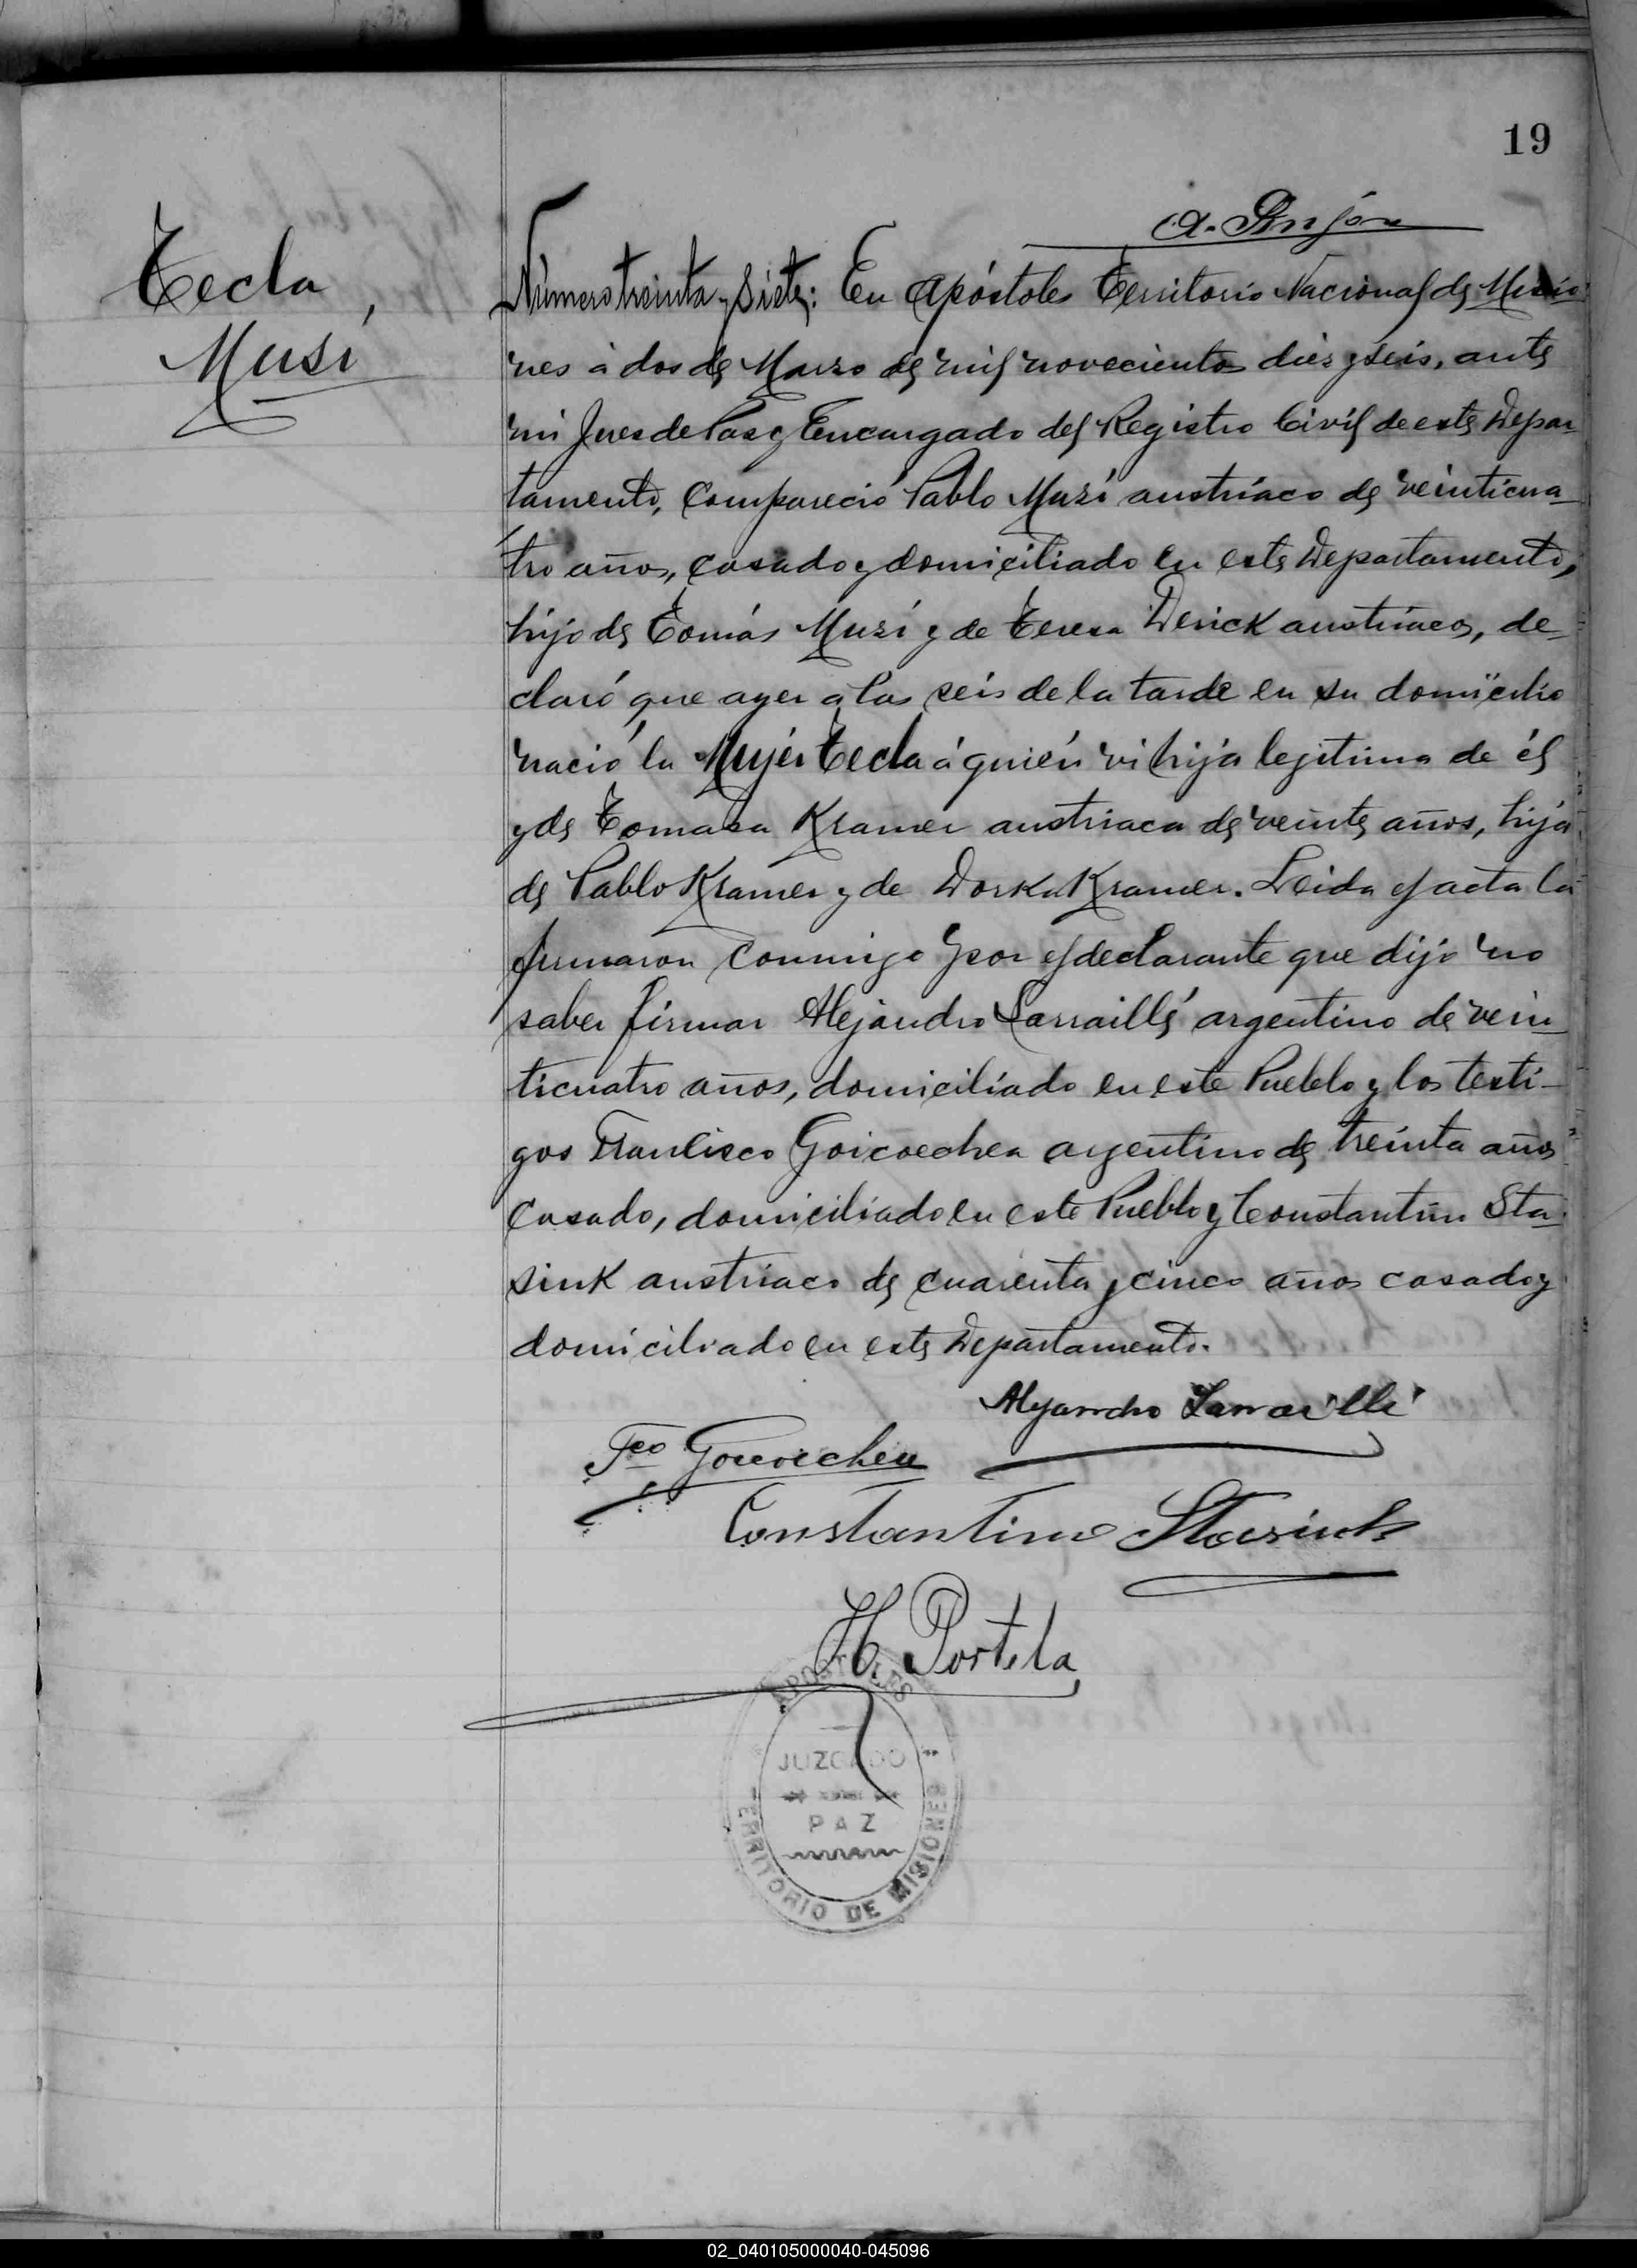 19
A. Pinjón
Tecla
Musi
Número treinta y siete: En Apóstoles Territorio Nacional de Misio
nes á dos de Marzo de mil novecientos diez y seis, ante
mi Juez de Paz y Encargado del Registro Civil de este Depar
tamento, compareció Pablo Musi austríaco de veinticua
tro años, casado y domiciliado en este Departamento,
hijo de Tomás Musi y de Teresa Derick austríacos, de
claró que ayer a las seis de la tarde en su domicilio
nació la Mujer Tecla á quién vi hija legitima de él
y de Tomasa Kramer austriaca de veinte años, hija
de Pablo Kramer y de Dorka Kramer. Leida el acta la
firmaron conmigo por el declarante que dijo no
saber firmar Alejandro Larraillé argentino de vein
ticuatro años, domiciliado en este Pueblo y los testi-
gos Francisco Goicoechea argentino de treinta años
casado, domiciliado en este Pueblo y Constantino Sta
sink austriaco de cuarenta y cinco años casado y
domiciliado en este Departamento.
Alejandro Larraillé
Fco Goicoechea
Constantino Stasink
H. Portela
APOSTOLES
JUZGADO
PAZ
TERRITORIO DE MISIONES
02_040105000040-045096